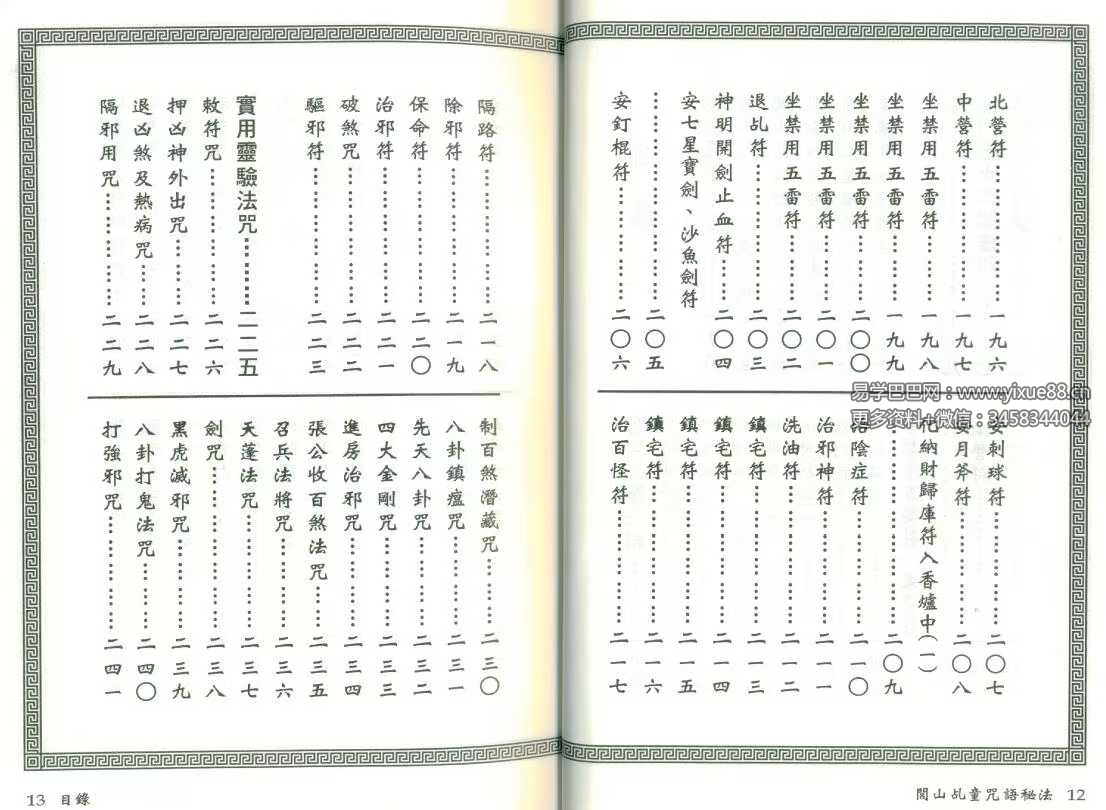 北營符……一九六
中營符……一九七
坐禁用五雷符……一九八
坐禁用五雷符……一九九
坐禁用五雷符……二〇〇
坐禁用五雷符……二〇一
坐禁用五雷符……二〇二
退乩符……二〇三
神明開劍止血符……二〇四
安七星寶劍、沙魚劍符
……二〇五
安釘棍符……二〇六
安刺球符……二〇七
安月斧符……二〇八
納財歸庫符入香爐中(一)
……二〇九
治陰症符……二一〇
治邪神符……二一一
洗油符……二一二
鎮宅符……二一三
鎮宅符……二一四
鎮宅符……二一五
鎮宅符……二一六
治百怪符……二一七
閭山乩童咒語秘法 12
隔路符……二一八
除邪符……二一九
保命符……二二〇
治邪符……二二一
破煞咒……二二二
驅邪符……二二三
實用靈驗法咒……二二五
敕符咒……二二六
押凶神外出咒……二二七
退凶煞及熱病咒……二二八
隔邪用咒……二二九
制百煞潛藏咒……二三〇
八卦鎮瘟咒……二三一
先天八卦咒……二三二
四大金剛咒……二三三
進房治邪咒……二三四
張公收百煞法咒……二三五
召兵法將咒……二三六
天蓬法咒……二三七
劍咒……二三八
黑虎滅邪咒……二三九
八卦打鬼法咒……二四〇
打強邪咒……二四一
13 目錄
易学巴巴网：www.yixue88.cn
更多资料+微信：3458344044